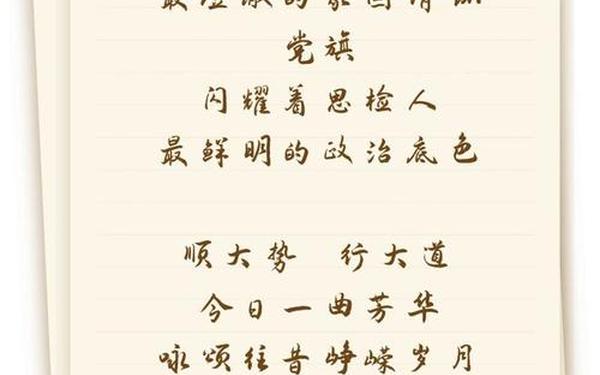 的家国情
党旗
闪耀着思检人
最鲜明的政治底色
顺大势 行大道
今日一曲芳华
咏颂往昔峥嵘岁月